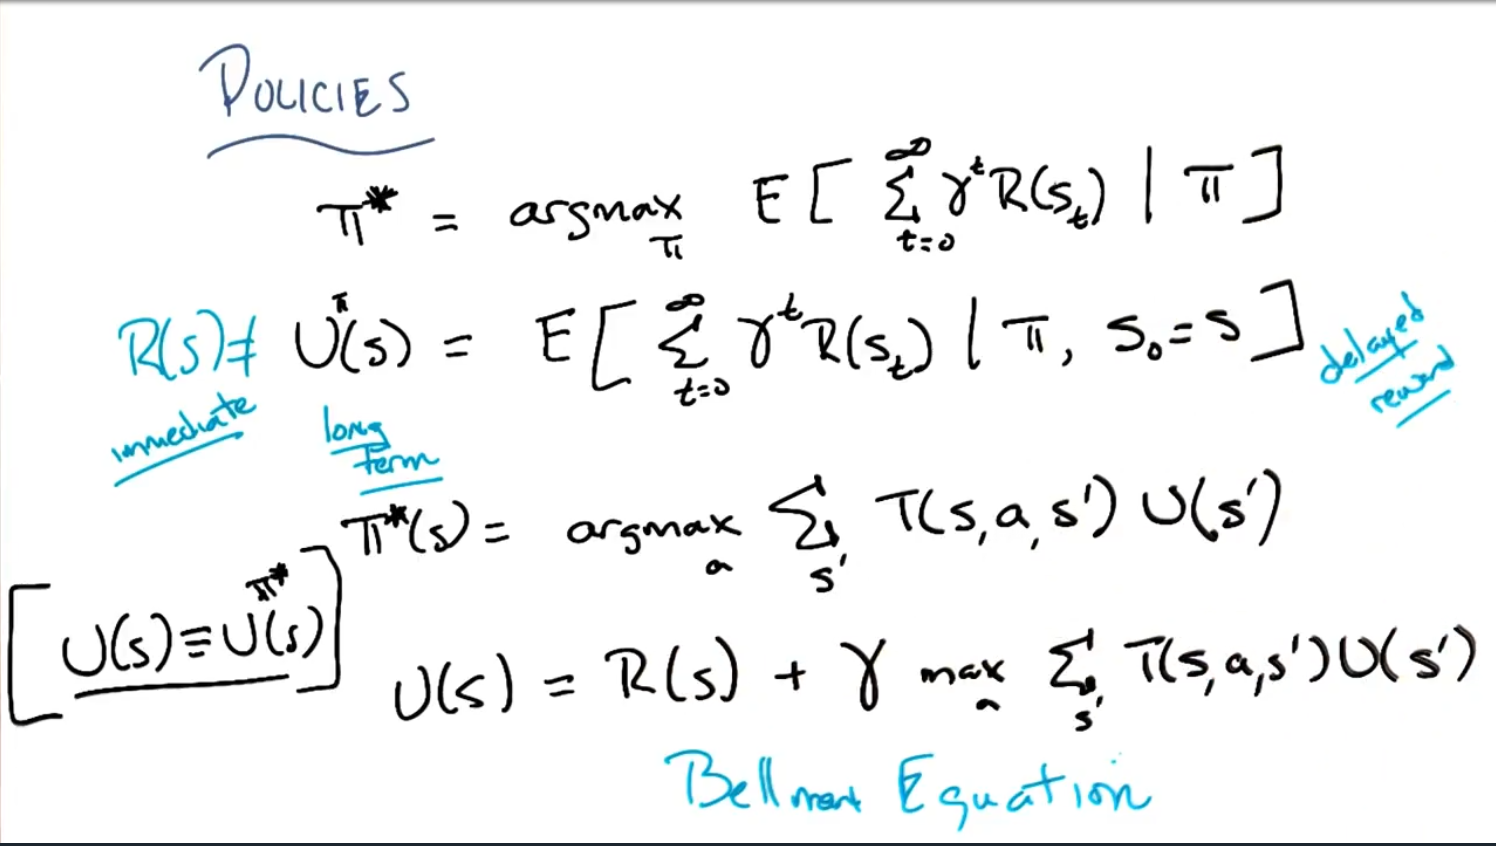 POLICIES
π* = argmax_π E[ Σ_{t=0}^{∞} γ^t R(s_t) | π ]
R(s) ≠ U^π(s) = E[ Σ_{t=0}^{∞} γ^t R(s_t) | π, s_0 = s ]
immediate
long term
delayed reward
π*(s) = argmax_a Σ_{s'} T(s,a,s') U(s')
[ U(s) ≡ U^{π*}(s) ]
U(s) = R(s) + γ max_a Σ_{s'} T(s,a,s') U(s')
Bellman Equation